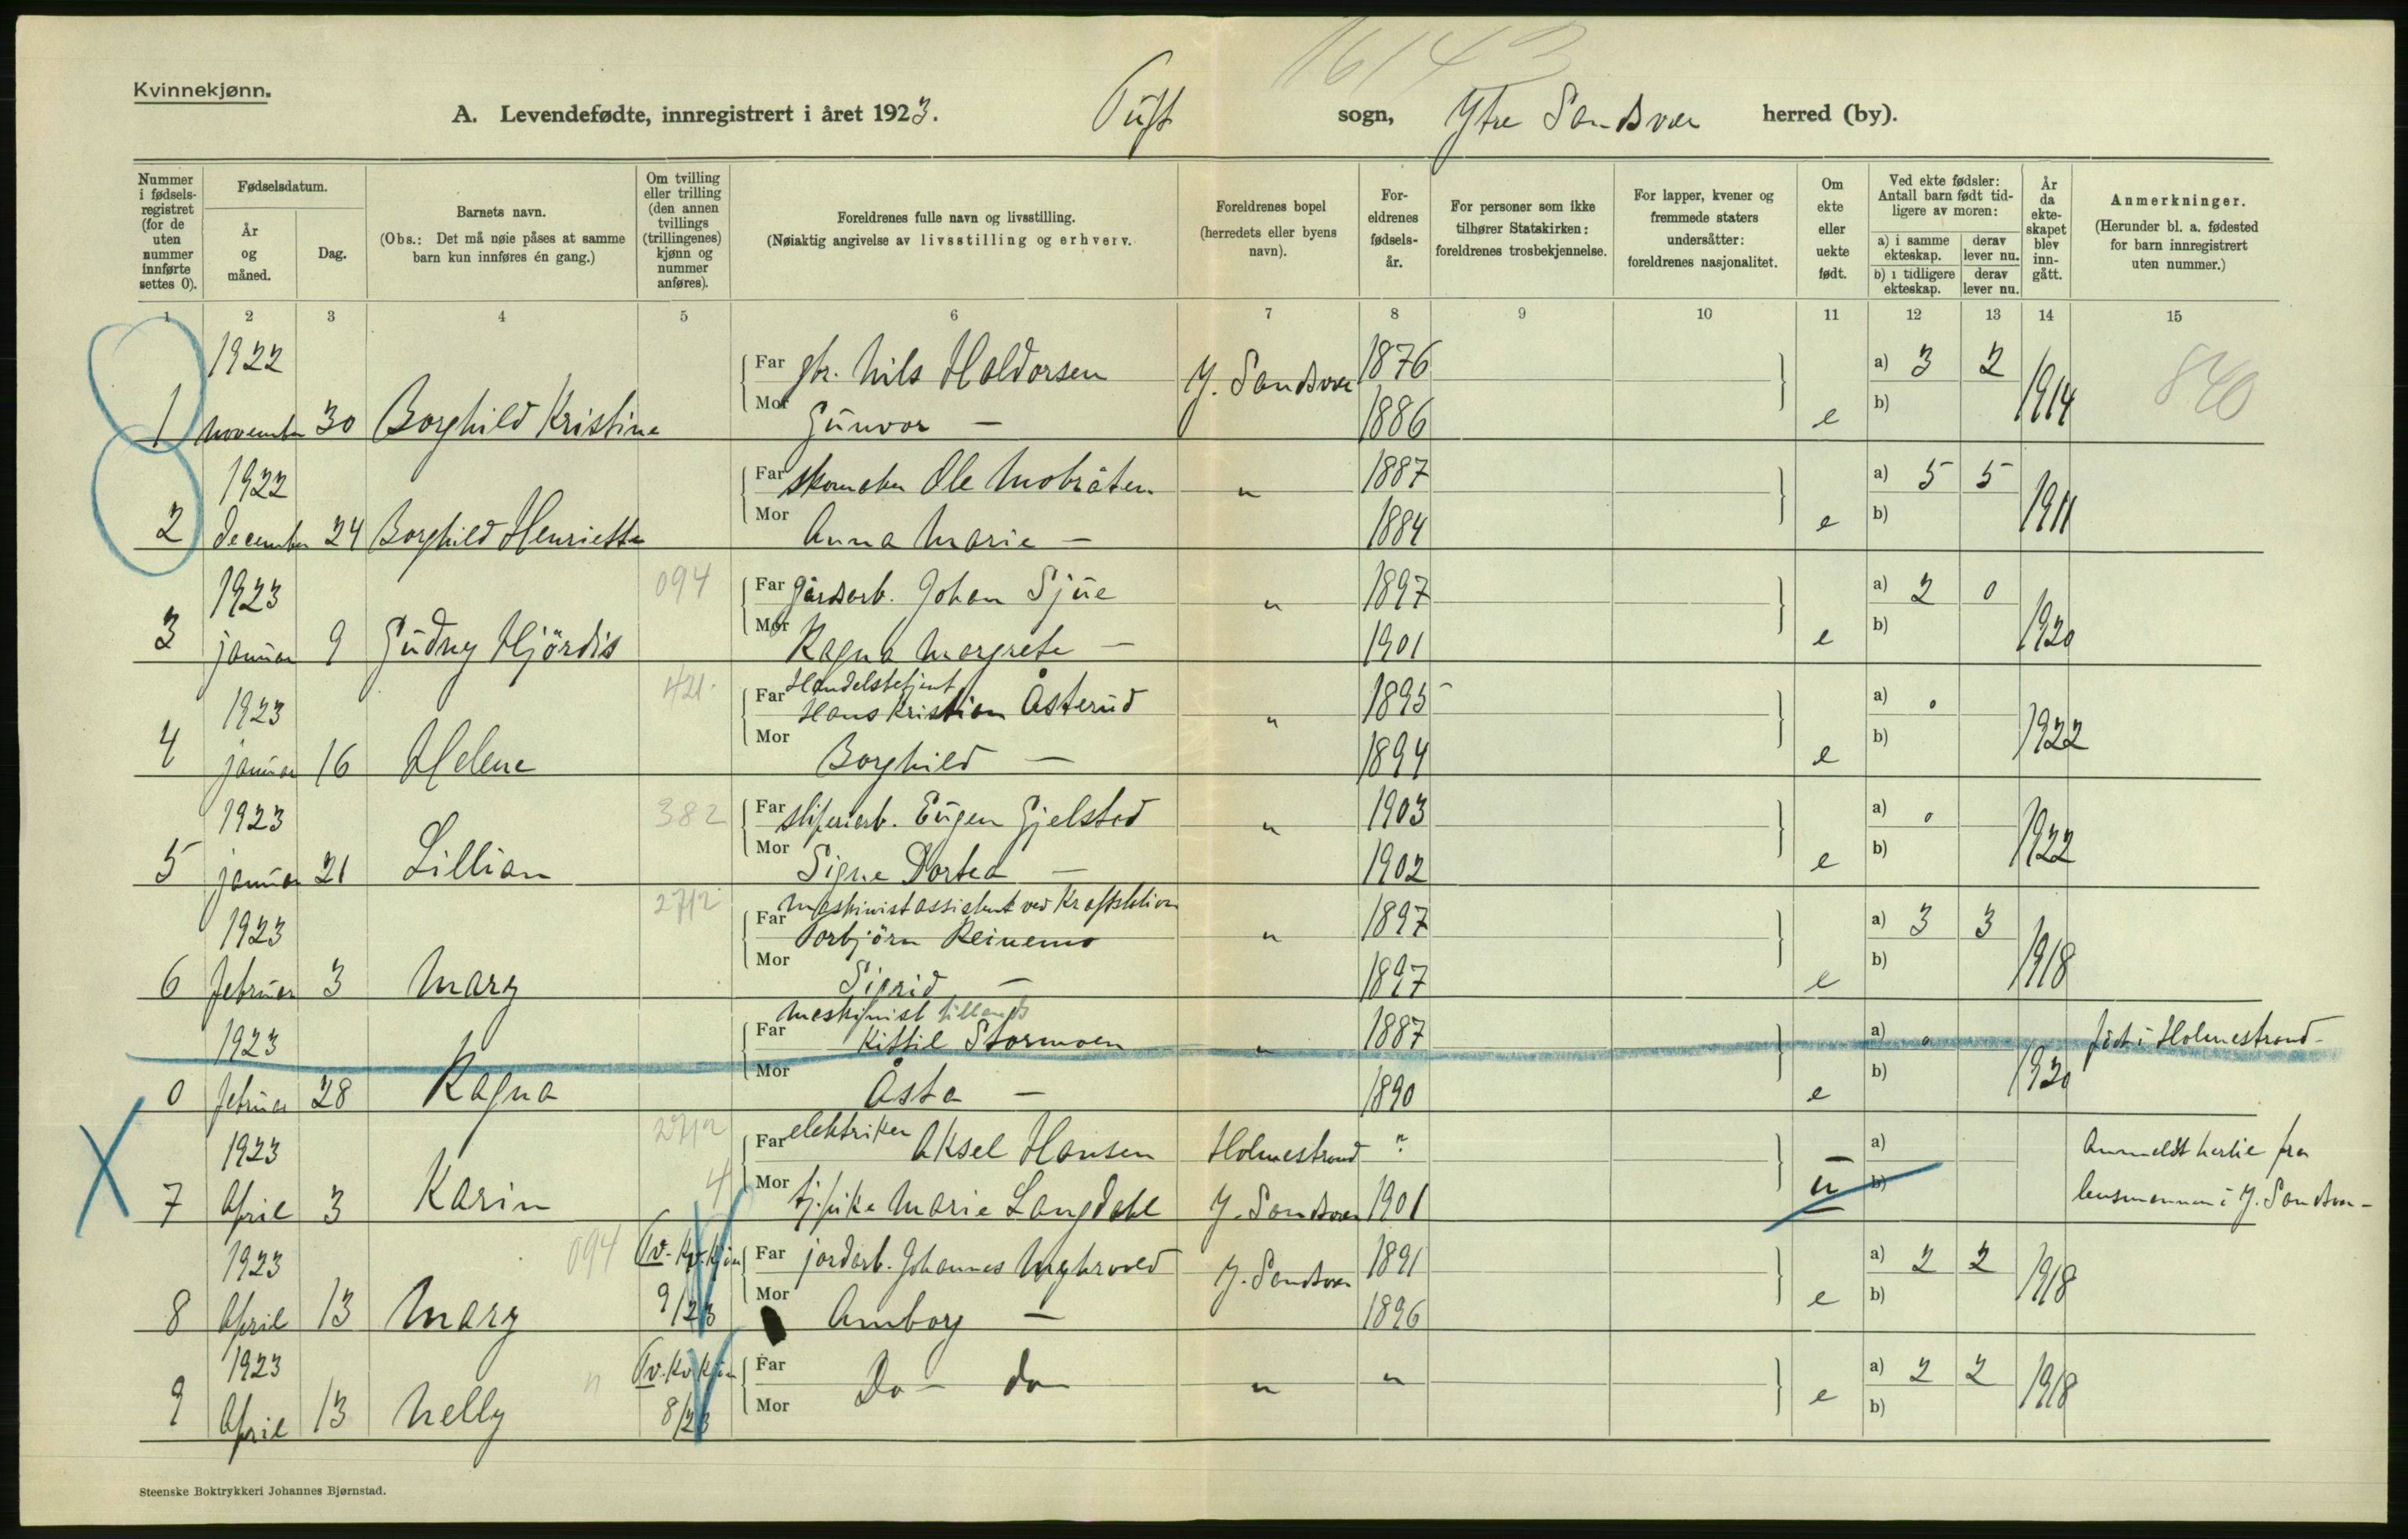 16143
Kvinnekjønn.
A. Levendefødte, innregistrert i året 1923. Tuft sogn, Ytre Sandsvær herred (by).
Nummer i fødsels- registret (for de uten nummer innførte settes 0).
Fødselsdatum.
År og måned.
Dag.
Barnets navn.
(Obs.: Det må nøie påses at samme barn kun innføres én gang.)
Om tvilling eller trilling (den annen tvillings (trillingenes) kjønn og nummer anføres).
Foreldrenes fulle navn og livsstilling.
(Nøiaktig angivelse av livsstilling og erhverv.
Foreldrenes bopel (herredets eller byens navn).
For- eldrenes fødsels- år.
For personer som ikke tilhører Statskirken: foreldrenes trosbekjennelse.
For lapper, kvener og fremmede staters undersåtter: foreldrenes nasjonalitet.
Om ekte eller uekte født.
Ved ekte fødsler: Antall barn født tid- ligere av moren:
a) i samme ekteskap. derav lever nu.
b) i tidligere ekteskap. derav lever nu.
År da ekte- skapet blev inn- gått.
Anmerkninger.
(Herunder bl. a. fødested for barn innregistrert uten nummer.)
1 2 3 4 5 6 7 8 9 10 11 12 13 14 15
1922 Far gbr. Nils Haldorsen Y. Sandsvær 1876 a) 3 2 1914 840
1 november 30 Borghild Kristine Mor Gunvor — 1886 e b)
1922 Far skomaker Ole Mobråten " 1887 a) 5 5 1911
2 december 24 Borghild Henriette Mor Anna Marie — 1884 e b)
1923 094 Far gårdsarb. Johan Sjue " 1897 a) 2 0 1920
3 januar 9 Gudny Hjördis Mor Ragna Margrete — 1901 e b)
1923 421 Far Handelsbetjent
Hans Kristian Åsterud " 1895 a) 0 1922
4 januar 16 Helene Mor Borghild — 1894 e b)
1923 382 Far sliperiarb. Eugen Gjelstad " 1903 a) 0 1922
5 januar 21 Lillian Mor Signe Dortea — 1902 e b)
1923 2712 Far Maskinistassistent ved Kraftstation
Torbjörn Reinemo " 1897 a) 3 3 1918
6 februar 3 Mary Mor Sigrid — 1897 e b)
1923 Far Maskinist tillands
Kittil Stormoen " 1887 a) 0 1920 født i Holmestrand
0 februar 28 Ragna Mor Åsta — 1890 e b)
1923 2712 Far elektriker Aksel Hansen Holmestrand ? a) Anmeldt hertil fra
7 April 3 Karin 4 Mor tj.pike Marie Langdahl Y. Sandsvær 1901 u b) lensmannen i Y. Sandsvær
1923 094 Tv. Kv.kjön Far jordarb. Johannes Myhrvold Y. Sandsvær 1891 a) 2 2 1918
8 April 13 Mary 9/23 Mor Amborg — 1896 e b)
1923 " Tv. Kv.kjön Far Do — do " " a) 2 2 1918
9 April 13 Nelly 8/23 Mor e b)
Steenske Boktrykkeri Johannes Bjørnstad.